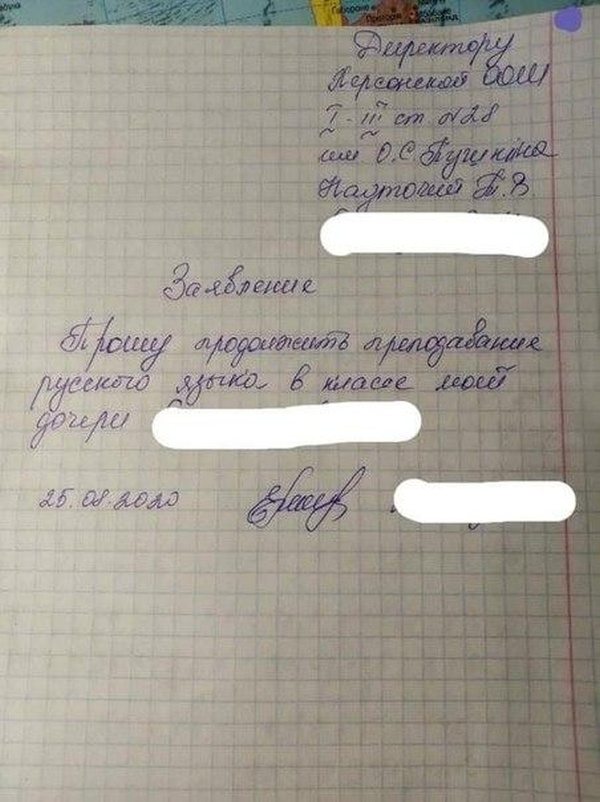 Габороне
Претория
Директору
Херсонской ООШ
I-III ст №28
им О.С. Пушкина
Науточий Т.В.
Заявление
Прошу продолжить преподавание
русского языка в классе моей
дочери
25.08.2020